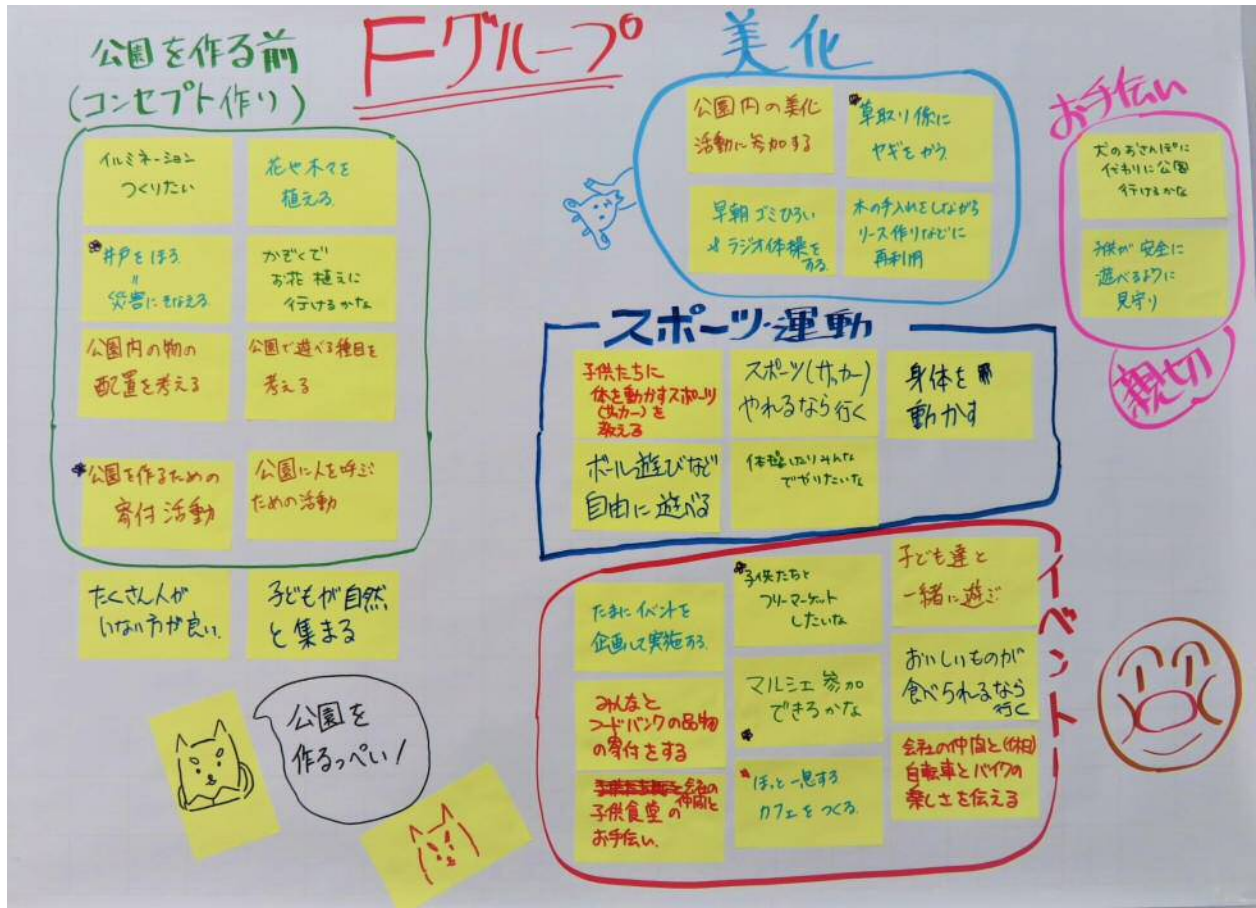 Fグループ
公園を作る前
(コンセプト作り)
イルミネーション
つくりたい
花や木々を
植える
井戸をほる
=
災害にそなえる
かぞくで
お花植えに
行けるかな
公園内の物の
配置を考える
公園で遊べる種目を
考える
公園を作るための
寄付活動
公園に人を呼ぶ
ための活動
たくさん人が
いない方が良い.
子どもが自然
と集まる
公園を
作るっぺい!
美化
公園内の美化
活動に参加する
草取り係に
ヤギをかう
早朝ゴミひろい
&ラジオ体操を
する.
木の手入れをしながら
リース作りなどに
再利用
お手伝い
犬のおさんぽに
代わりに公園
行けるかな
子供が安全に
遊べるように
見守り
親切
スポーツ・運動
子供たちに
体を動かすスポーツ
(サッカー)を
教える
スポーツ(サッカー)
やれるなら行く
身体を
動かす
ボール遊びなど
自由に遊べる
体操したりみんな
でやりたいな
イベントー
たまにイベントを
企画して実施する.
子供たちと
フリーマーケット
したいな
子ども達と
一緒に遊ぶ
みんなと
フードバンクの品物
の寄付をする
マルシェ参加
できるかな
おいしいものが
食べられるなら
行く
会社の
仲間と
子供食堂の
お手伝い.
ほっと一息する
カフェをつくる.
会社の仲間と(休日)
自転車とバイクの
楽しさを伝える